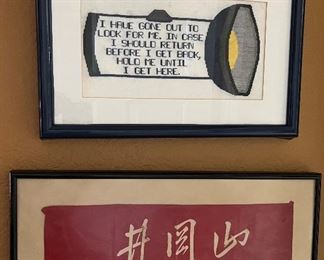 I HAVE GONE OUT TO
LOOK FOR ME. IN CASE
I SHOULD RETURN
BEFORE I GET BACK,
HOLD ME UNTIL
I GET HERE.
井冈山